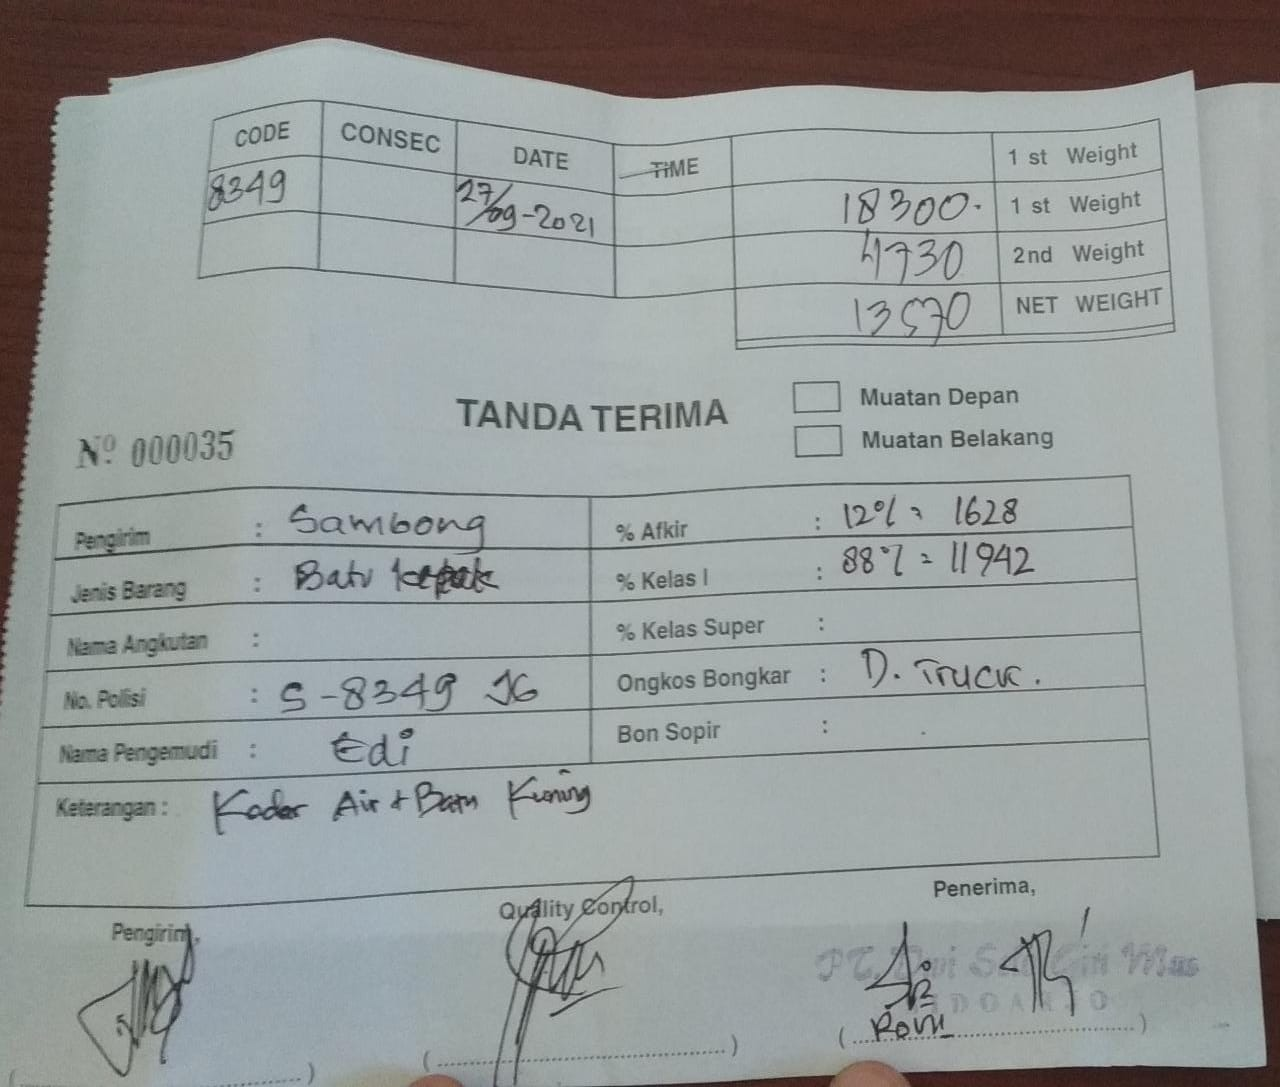 CODE CONSEC DATE TIME 1 st Weight
8349 27/09-2021 18300. 1 st Weight
4730 2nd Weight
13570 NET WEIGHT
TANDA TERIMA
Muatan Depan
Muatan Belakang
Nº 000035
Pengirim : Sambong % Afkir : 12% = 1628
Jenis Barang : Batu % Kelas I : 88% = 11942
Nama Angkutan : % Kelas Super :
No. Polisi : S-8349 JG Ongkos Bongkar : D. Truck.
Nama Pengemudi : Edi Bon Sopir :
Keterangan : Kadar Air + Batu Kuning
Pengirim, Quality Control, Penerima,
PT. Giri Mas
(....................) (....................) (....................)